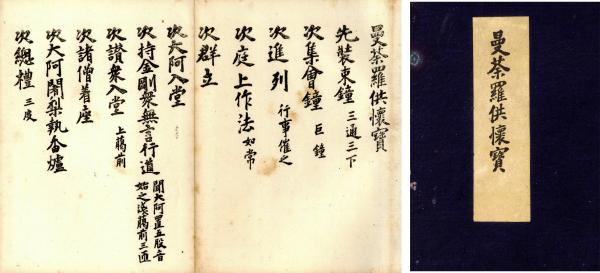 曼荼羅供懷寶
先裝束鐘 三通三下
次集會鐘 巨鐘
次進列 行事催之
次庭上作法 如常
次群立
次大阿入堂
次持金剛衆無言行道 聞大阿置五股音
始之
前三匝
次讃衆入堂 上﨟前
次諸僧着座
次大阿闍梨執香爐
次總禮 三度
曼荼羅供懷寶